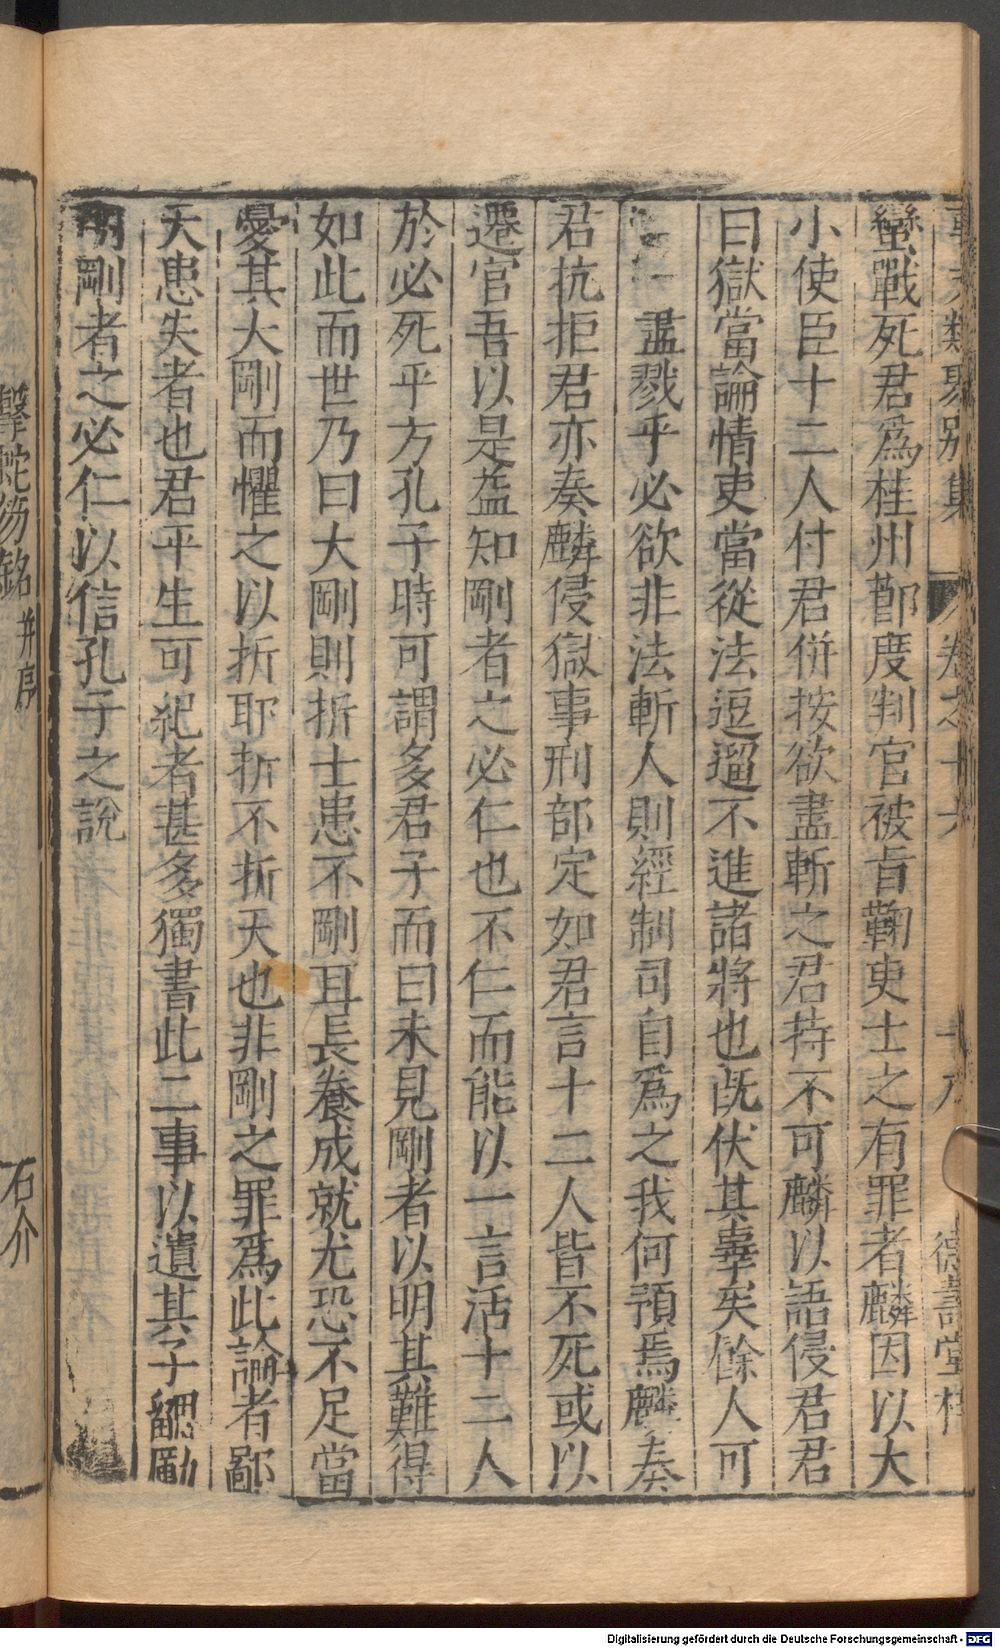 事文類聚別集 卷之十六 德壽堂梓
蠻戰死君爲桂州鄮度判官被旨鞫吏士之有罪者麟因以大
小使臣十二人付君併按欲盡斬之君持不可麟以語侵君君
曰獄當論情吏當從法逗遛不進諸將也旣伏其辜矣餘人可
盡戮乎必欲非法斬人則經制司自爲之我何預焉麟奏
君抗拒君亦奏麟侵獄事刑部定如君言十二人皆不死或以
遷官吾以是益知剛者之必仁也不仁而能以一言活十二人
於必死乎方孔子時可謂多君子而曰未見剛者以明其難得
如此而世乃曰大剛則折士患不剛耳長養成就尤恐不足當
憂其大剛而懼之以折耶折不折天也非剛之罪爲此論者鄙
夫患失者也君平生可紀者甚多獨書此二事以遺其子勰勵
明剛者之必仁以信孔子之說
擊蛇笏銘 幷序 石介
Digitalisierung gefördert durch die Deutsche Forschungsgemeinschaft - DFG